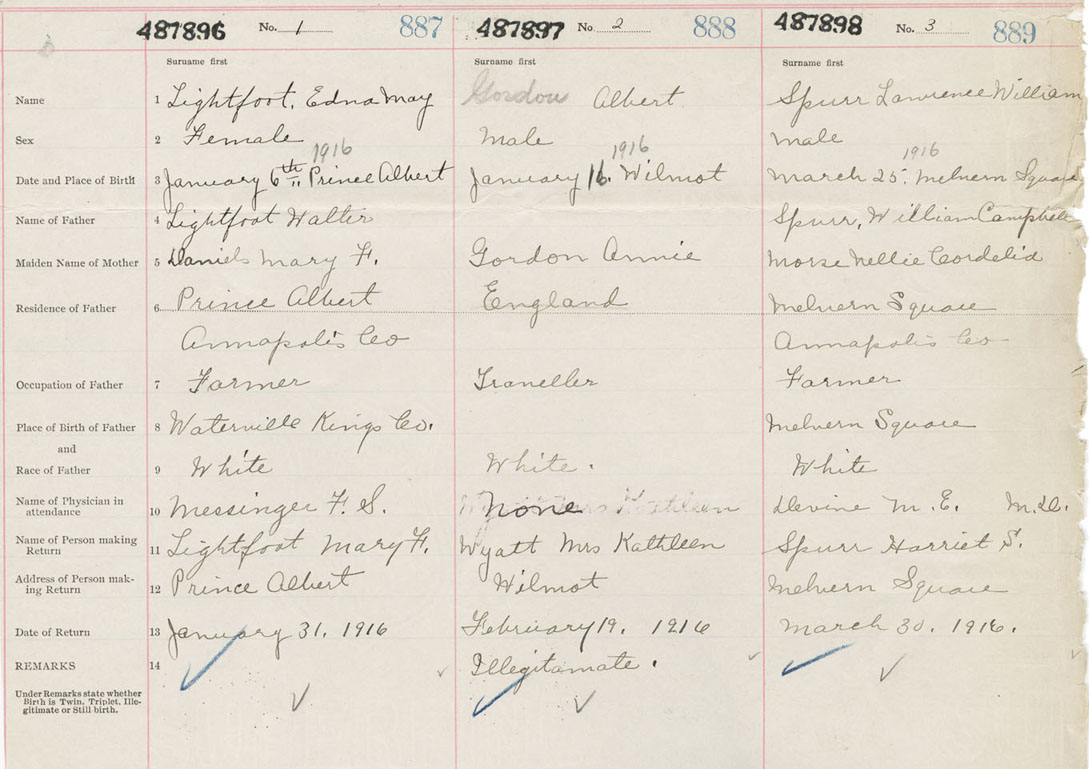 487896 No. 1 887 487897 No 2 888 487898 No. 3 889
Surname first Surname first Surname first
Name 1 Lightfoot, Edna May Gordon Albert Spurr Lawrence William
Sex 2 Female Male Male
1916 1916 1916
Date and Place of Birth 3 January 6th Prince Albert January 16. Wilmot March 25. Melvern Square
Name of Father 4 Lightfoot Walter Spurr, William Campbell
Maiden Name of Mother 5 Daniels Mary F. Gordon Annie Morse Nellie Cordelia
Residence of Father 6 Prince Albert England Melvern Square
Annapolis Co Annapolis Co
Occupation of Father 7 Farmer Traveller Farmer
Place of Birth of Father 8 Waterville Kings Co. Melvern Square
and
Race of Father 9 White White. White
Name of Physician in
attendance 10 Messinger F. S. None Mrs Kathleen Devine M. E. M.D.
Name of Person making
Return 11 Lightfoot Mary F. Wyatt Mrs Kathleen Spurr Harriet S.
Address of Person mak-
ing Return 12 Prince Albert Wilmot Melvern Square
Date of Return 13 January 31, 1916 February 19. 1916 March 30. 1916.
REMARKS 14 Illegitamate.
Under Remarks state whether
Birth is Twin, Triplet, Ille-
gitimate or Still-birth.